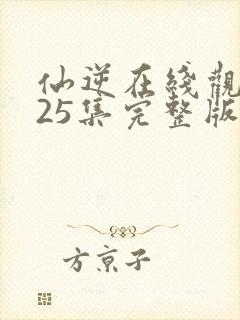 仙逆在綫觀
25集完整版
方京子